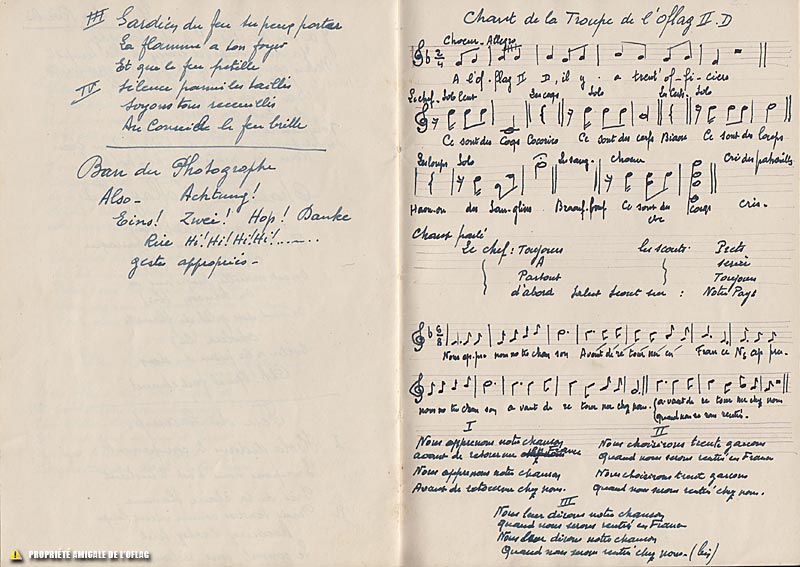 III Gardien du feu tu peux porter
La flamme a ton foyer
Et que le feu petille
IV Silence parmi les taillis
Soyons tous recueillis
Au le feu brille
Ban du Photographe
Also - Achtung!
Eins! Zwei! Hop! Danke
Rire Hi! Hi! Hi! Hi! ......
geste appropriés -
Chant de la Troupe de l'oflag II.D
Choeur - Allegro
A l'of-flag II D, il y - a trent' of-fi-ciers
Le chef - Solo Tous En coqs Solo Solo
Ce sont des Coqs Cocorico Ce sont des cerfs Ce sont des Loups
En loups Solo En sang. choeur Cri des patrouilles
des San-gliers Ce sont des Coqs Cris -
Chant parlé
Le chef : Toujours les scouts : Prets
A servir
Partout Toujours
d'abord Salut Scout sur : Notre Pays
Nous ap-pre nons no tre chan son Avant de re tour ner en France Ns ap pre -
nons no tre chan son a vant de re tour ner chez nous. a vant de re tour ner chez nous
quand nous se rons rentrés.
I
Nous apprenons notre chanson
avant de retourner en France
Nous apprenons notre chanson
Avant de retourner chez nous.
II
Nous choisirons trente garçons
Quand nous serons rentrés en France
Nous choisirons trent garçons
Quand nous serons rentrés chez nous.
III
Nous leur dirons notre chanson
Quand nous serons rentrés en France
Nous leur dirons notre chanson
Quand nous serons rentrés chez nous - (bis)
PROPRIÉTÉ AMICALE DE L'OFLAG